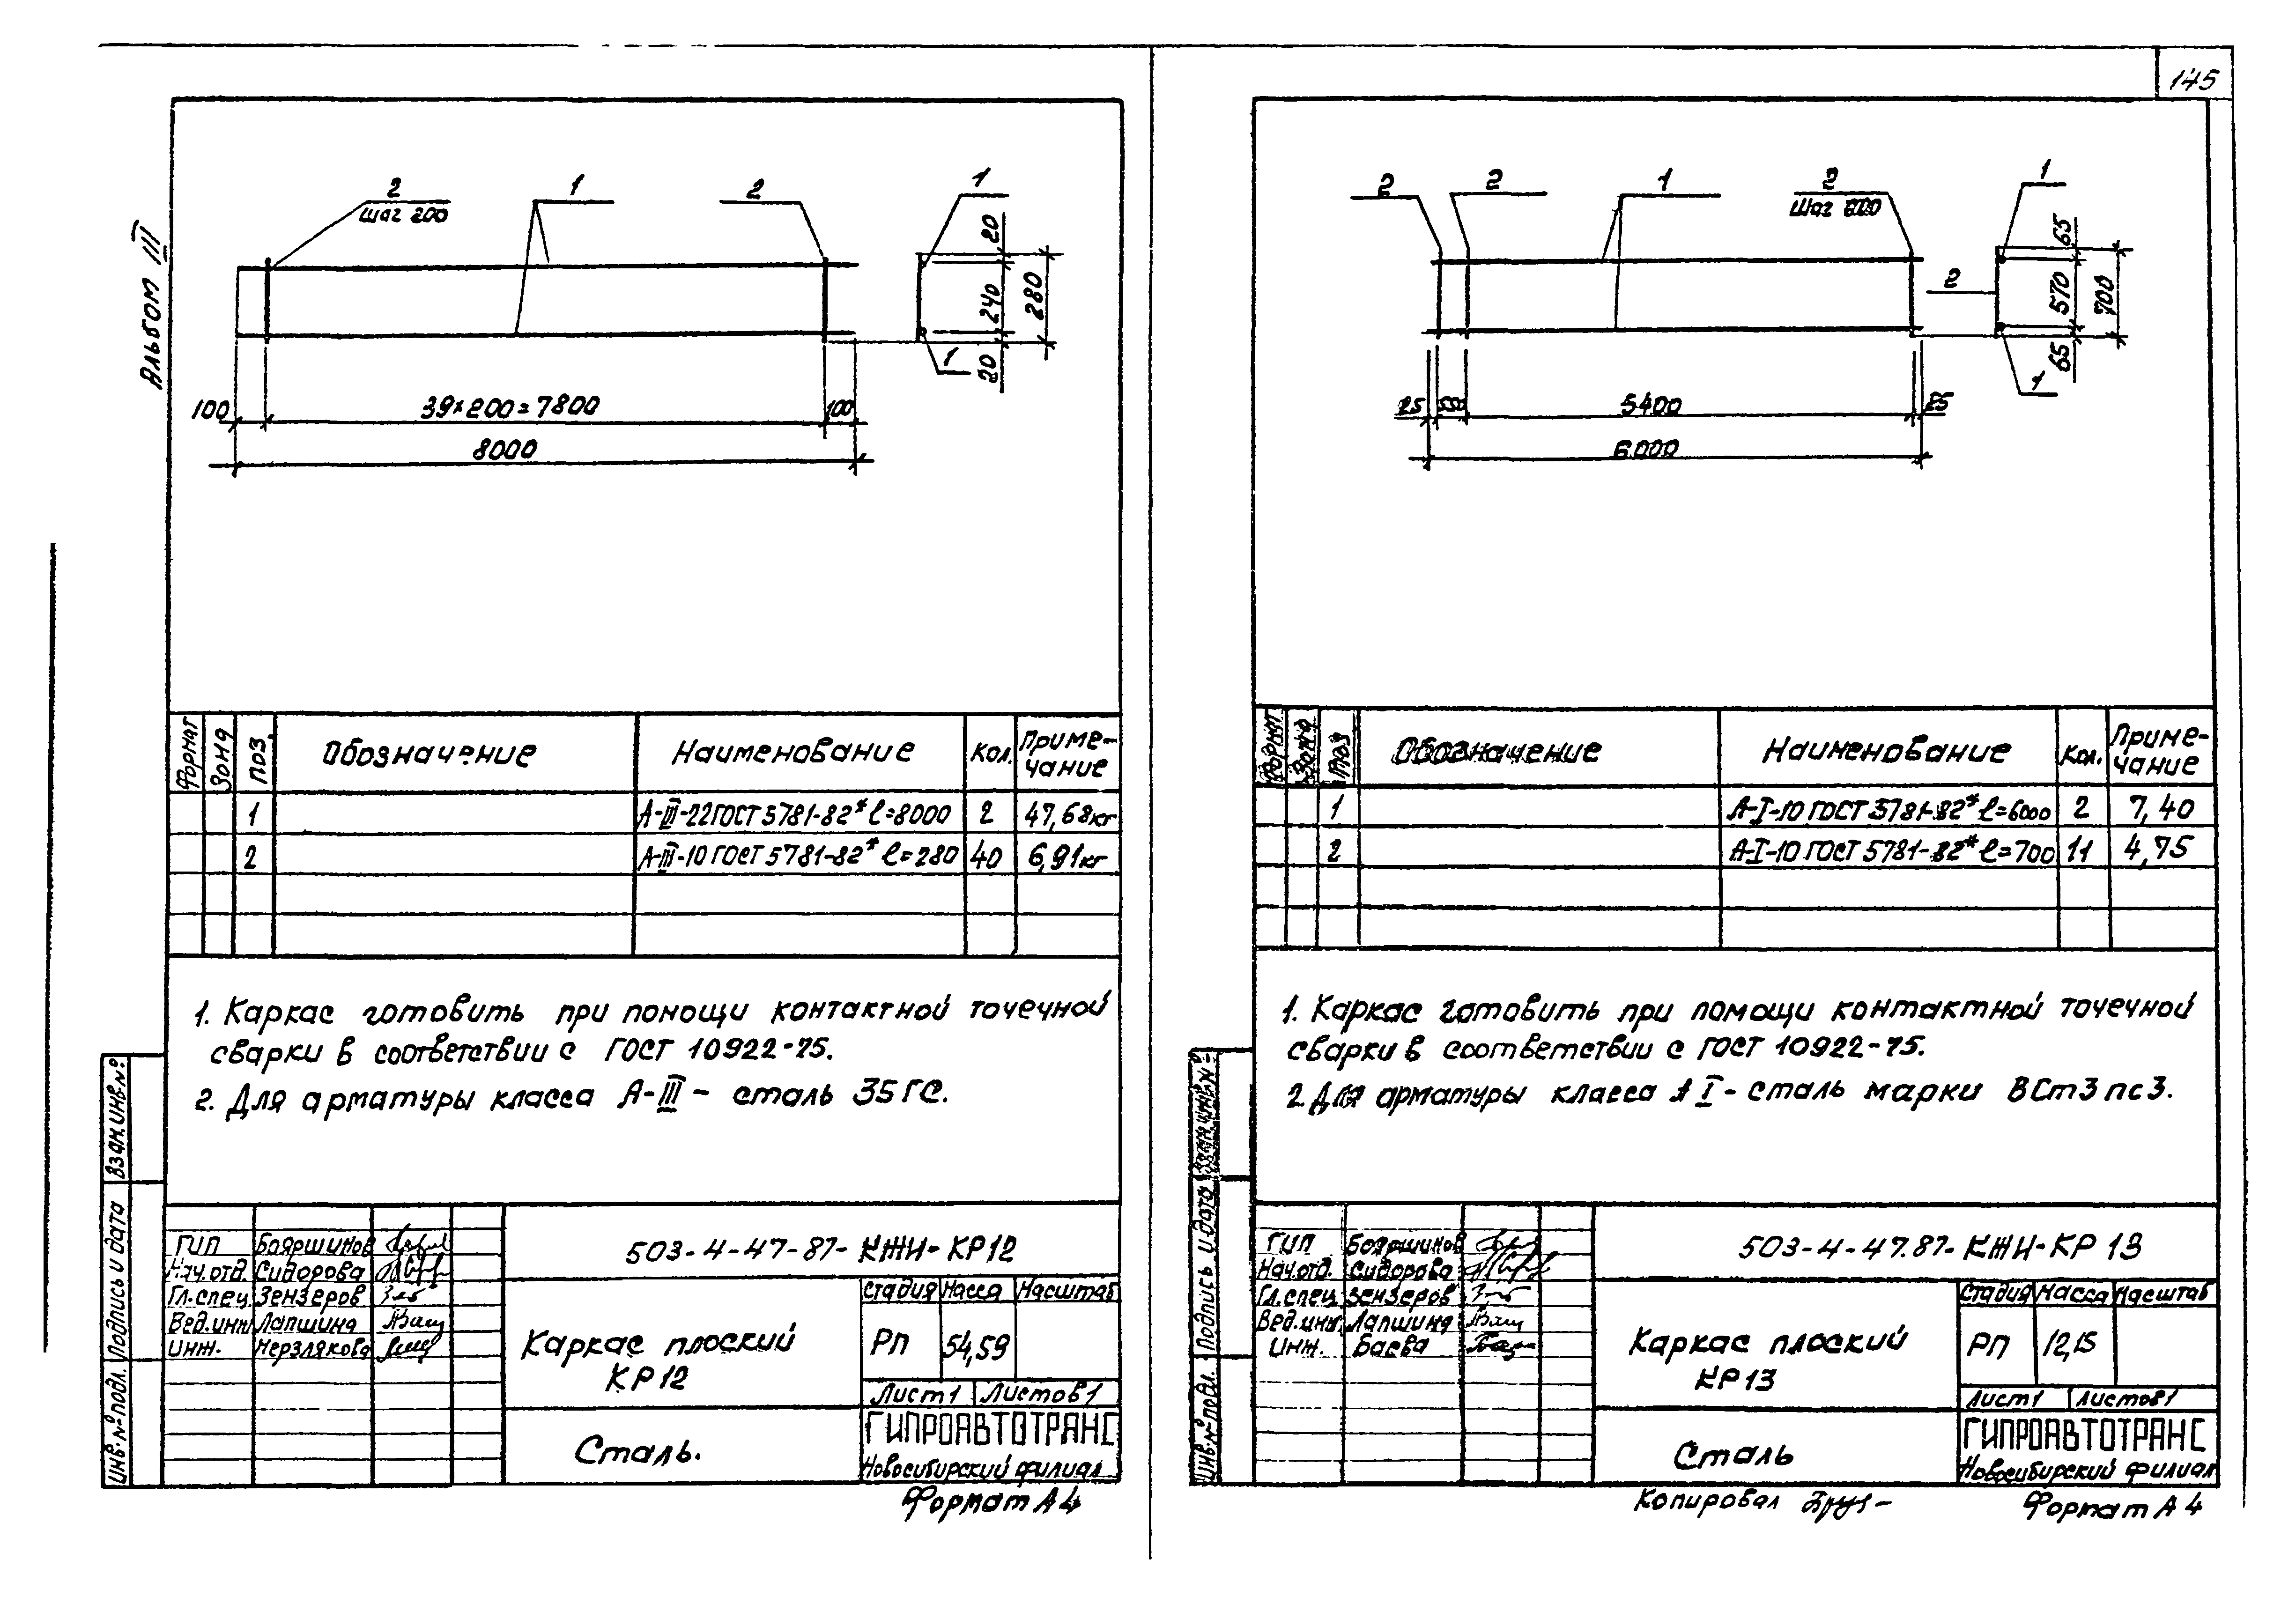 145
Альбом III
2
шаг 200
1
2
1
20
240
280
20
1
100
39×200=7800
100
8000
Формат
Зона
Поз.
Обозначение
Наименование
Кол.
Приме-
чание
1
А-III-22 ГОСТ 5781-82* ℓ=8000
2
47,68кг
2
А-III-10 ГОСТ 5781-82* ℓ=280
40
6,91кг
1. Каркас готовить при помощи контактной точечной
сварки в соответствии с ГОСТ 10922-75.
2. Для арматуры класса А-III - сталь 35ГС.
Взам.инв.№
Подпись и дата
Инв.№подл.
ГИП Бояршинов
Нач.отд. Сидорова
Гл.спец. Зензеров
Вед.инж Лапшина
Инж. Мерзлякова
503-4-47-87-КЖИ-КР12
Каркас плоский
КР12
Сталь.
Стадия Масса Масштаб
РП 54,59
Лист1 Листов1
ГИПРОАВТОТРАНС
Новосибирский филиал
Формат А4
2
2
1
2
шаг 600
1
65
570
700
65
2
1
25
550
5400
25
6000
Формат
Зона
Поз
Обозначение
Наименование
Кол.
Приме-
чание
1
А-I-10 ГОСТ 5781-82* ℓ=6000
2
7,40
2
А-I-10 ГОСТ 5781-82* ℓ=700
11
4,75
1. Каркас готовить при помощи контактной точечной
сварки в соответствии с ГОСТ 10922-75.
2. Для арматуры класса А I - сталь марки ВСт3пс3.
Взам.инв.№
Подпись и дата
Инв.№подл.
ГИП Бояршинов
Нач.отд. Сидорова
Гл.спец. Зензеров
Вед.инж. Лапшина
Инж. Баева
503-4-47.87-КЖИ-КР 13
Каркас плоский
КР13
Сталь
Стадия Масса Масштаб
РП 12,15
Лист1 Листов1
ГИПРОАВТОТРАНС
Новосибирский филиал
Копировал
Формат А4